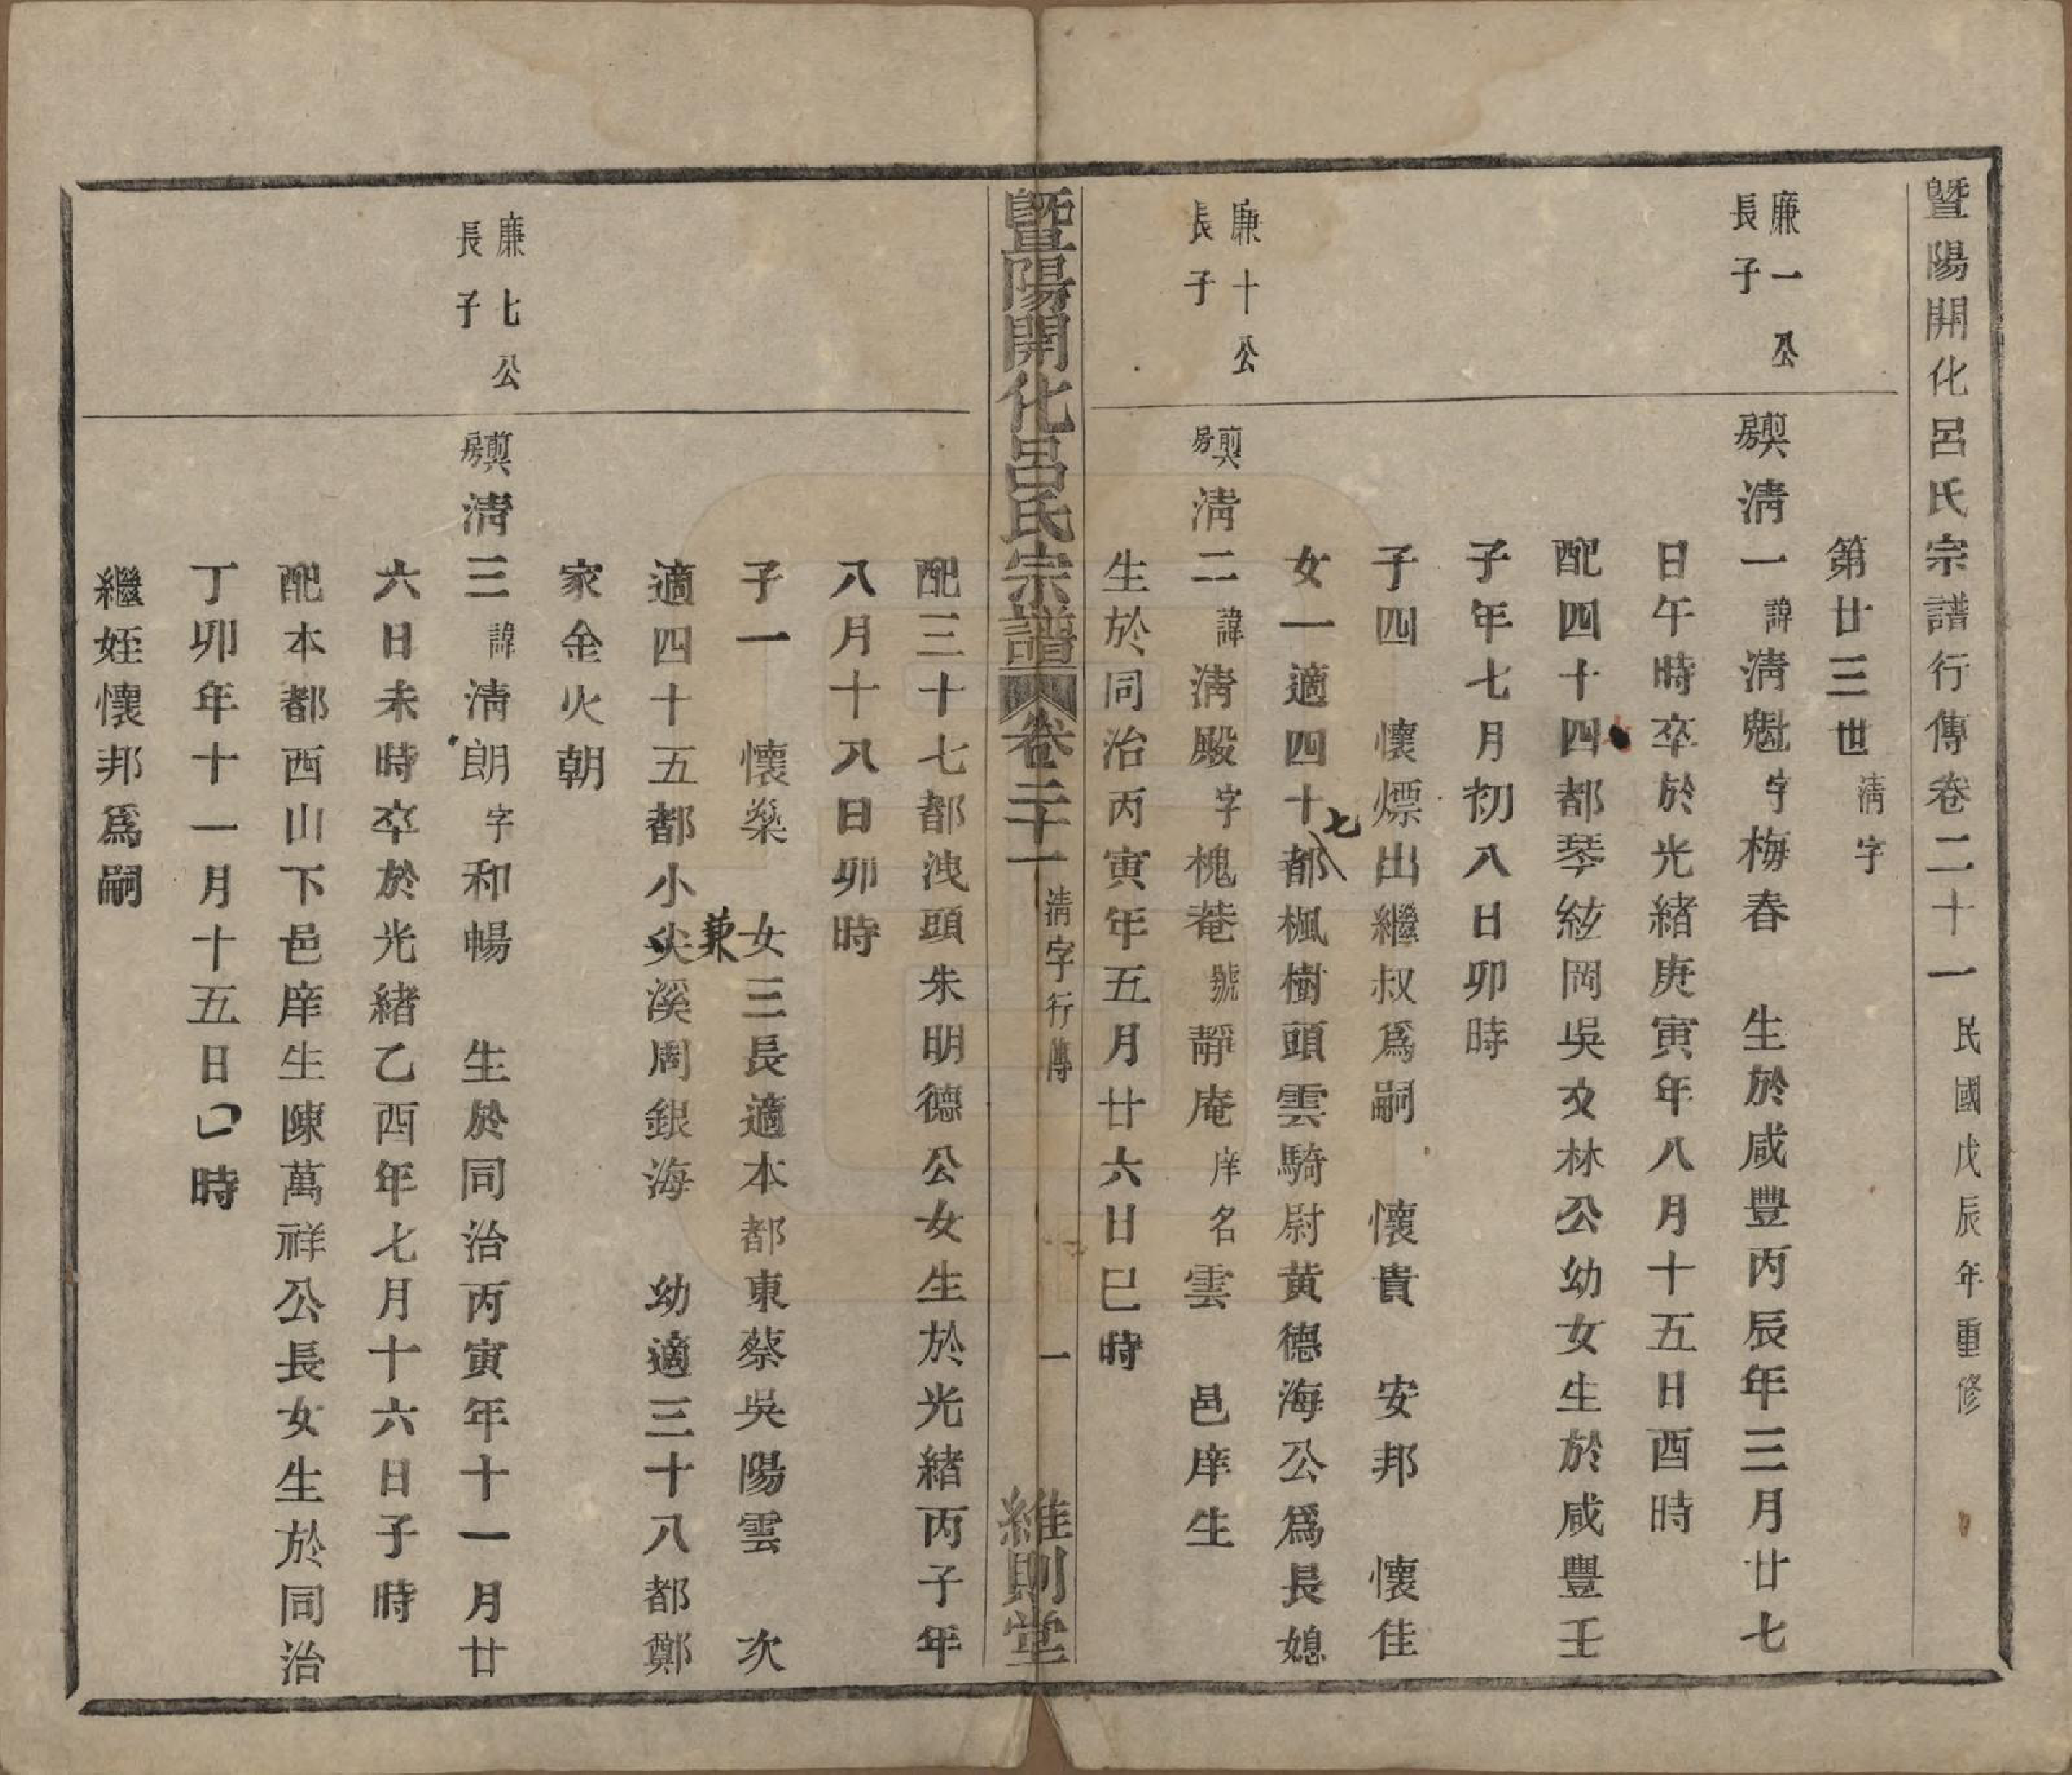 暨陽開化呂氏宗譜行傳卷二十一 民國戊辰年重修
第廿三世 清字
廉一公
長子
巽房 清一 諱 清魁 字 梅春 生於咸豐丙辰年三月廿七
日午時卒於光緒庚寅年八月十五日酉時
配四十四都琴絃岡吳文林公幼女生於咸豐壬
子年七月初八日卯時
子四 懷熛出繼叔爲嗣 懷貴 安邦 懷佳
女一適四十七都楓樹頭雲騎尉黄德海公爲長媳
廉十公
長子
巽房 清二 諱 清殿 字 槐菴 號 靜庵 庠名 雲 邑庠生
生於同治丙寅年五月廿六日巳時
暨陽開化呂氏宗譜 卷二十一 清字行傳 一 維則堂
配三十七都洩頭朱明德公女生於光緒丙子年
八月十八日卯時
子一 懷燊 女三長適本都東蔡吳陽雲 次
適四十五都小尖溪周銀海 幼適三十八都鄭
家金火朝
廉七公
長子
巽房 清三 諱 清朗 字 和暢 生於同治丙寅年十一月廿
六日未時卒於光緒乙酉年七月十六日子時
配本都西山下邑庠生陳萬祥公長女生於同治
丁卯年十一月十五日 時
繼姪懷邦爲嗣